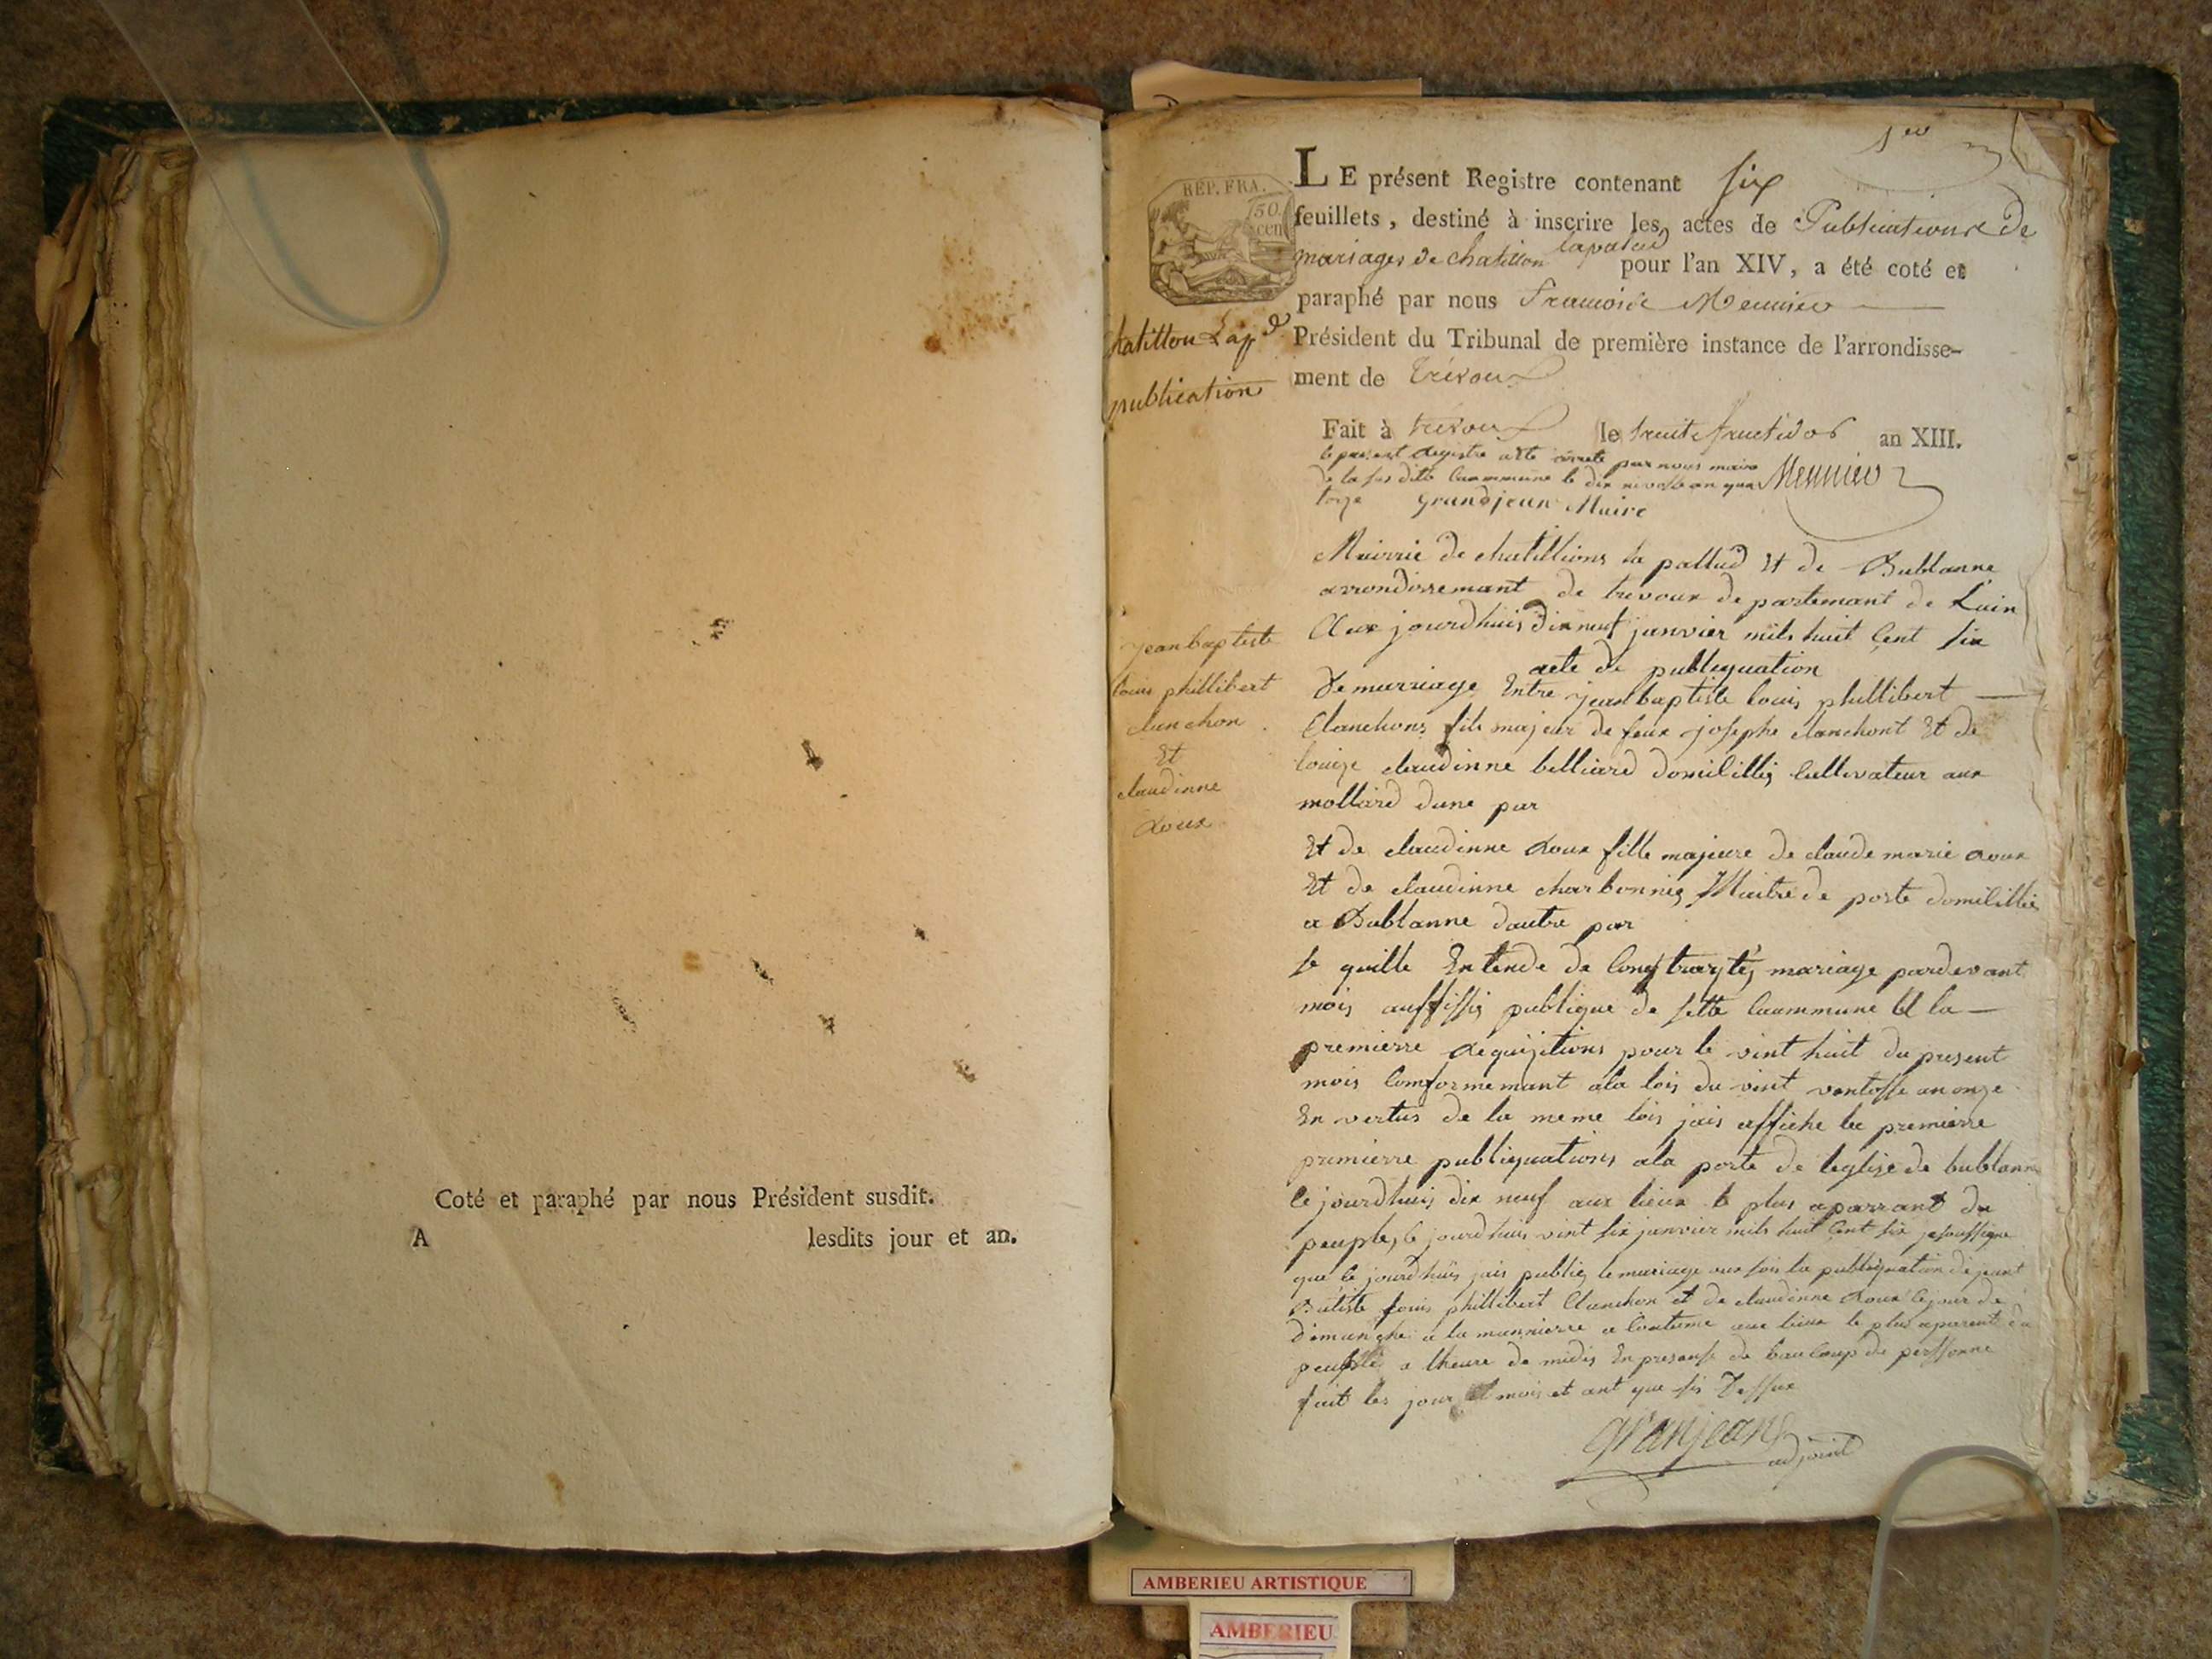 Coté et paraphé par nous Président susdit.
A lesdits jour et an.
1er
RÉP. FRA.
50
cen
LE présent Registre contenant six
feuillets, destiné à inscrire les actes de Publications de
mariages de chatillon lapalud pour l'an XIV, a été coté et
paraphé par nous François Meunier
Président du Tribunal de première instance de l'arrondisse-
ment de Trévoux
hatillon Lapd
publication
Fait à trévoux le huit fructidor an XIII.
le present registre arrete par nous maire
de la sus ditte Commune le dix nivose an qua
torze grandjean Maire
Meunier
Mairrie de chatillions la pallud Et de Bublanne
arrondissemant de trevoux de partemant de Lain
Aux jourdhuis dix neuf janvier mils huit Cent six
acte de publiquation
De marriage Entre jean baptiste louis phillibert
Clanchons fils majeur de feux josephe clanchont Et de
louize claudinne billiard domicillié Cultivateur aux
mollard dune par
jean baptiste
louis phillibert
clanchon
Et
claudinne
Roux
Et de claudinne Roux fille majeure de claude marie Roux
Et de claudinne charbonnié Maitre de poste domicillié
a Bublanne dautre par
le quille Entende de Contrayté mariage pardevant
mois auffissié publique de sette Commune Et la
premierre Requizitions pour le vint huit du present
mois Comformemant ala lois du vint ventosse an onze
En vertus de la meme lois jais affiche la premierre
premierre publiquations ala porte de leglize de bublanne
le jourdhuis dix neuf aux lieux le plus aparrant du
peuple, le jourdhuis vint six janvier mils huit Cent six je soussigne
que le jourdhuis jais publié le mariage aux fois la publiquation de jeant
Batiste louis phillibert Clanchon et de claudinne Roux le jour de
dimanche a la mannierre a Coutume aux lieux le plus aparent du
peuple a lheure de midis En presense de bauCoup de perssonne
fait les jour Et mois et ant que sis Dessux
granjean
adjoint
AMBERIEU ARTISTIQUE
AMBERIEU